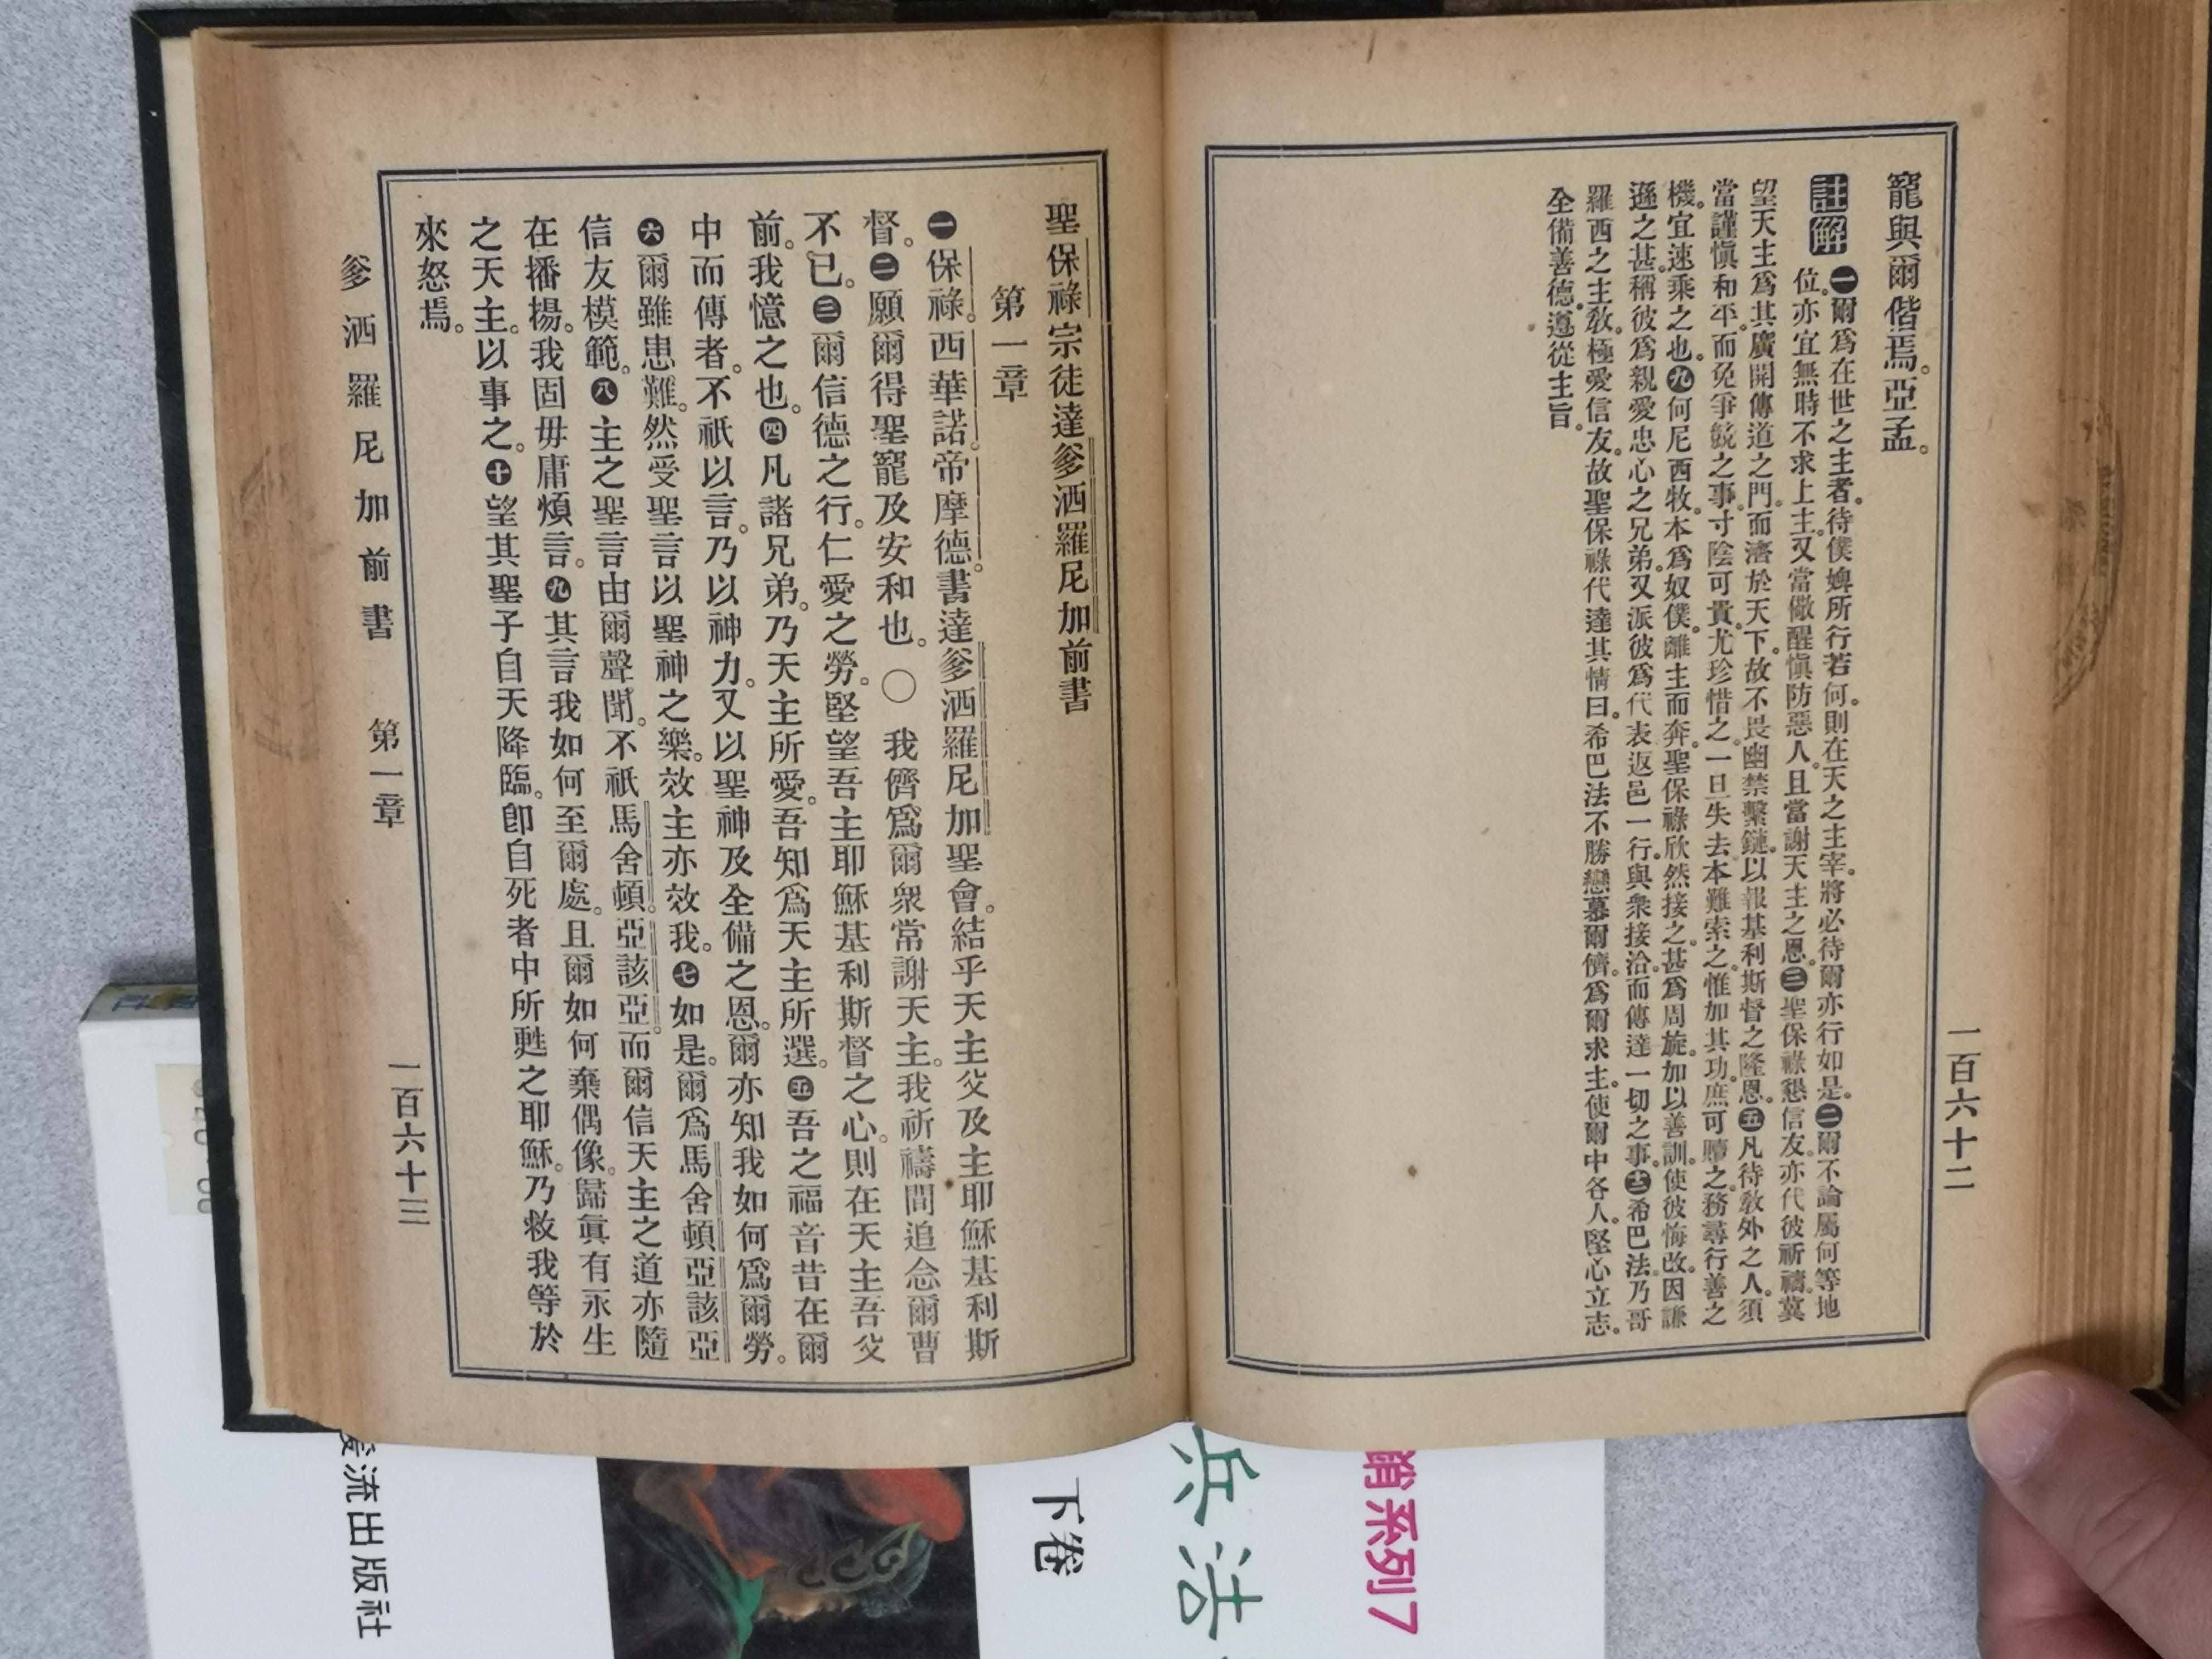 一百六十二
寵與爾偕焉。亞孟。
註解 ㊀爾爲在世之主者。待僕婢所行若何。則在天之主宰。將必待爾亦行如是。㊁爾不論屬何等地
位。亦宜無時不求上主。又當儆醒愼防惡人。且當謝天主之恩。㊂聖保祿懇信友。亦代彼祈禱。冀
望天主爲其廣開傳道之門。而濟於天下。故不畏幽禁繫鏈。以報基利斯督之隆恩。㊄凡待敎外之人。須
當謹愼和平。而免爭競之事。寸陰可貴。尤珍惜之。一旦失去。本難索之。惟加其功。庶可贖之。務尋行善之
機。宜速乘之也。㊈何尼西牧。本爲奴僕。離主而奔。聖保祿欣然接之。甚爲周旋。加以善訓。使彼悔改。因謙
遜之甚。稱彼爲親愛忠心之兄弟。又派彼爲代表返邑一行。與衆接洽。而傳達一切之事。㊉㊁希巴法乃哥
羅西之主敎。極愛信友。故聖保祿代達其情曰。希巴法不勝戀慕爾儕。爲爾求主。使爾中各人。堅心立志。
全備善德。遵從主旨。
聖保祿宗徒達爹洒羅尼加前書
第一章
㊀保祿。西華諾。帝摩德。書達爹洒羅尼加聖會。結乎天主父及主耶穌基利斯
督。㊁願爾得聖寵及安和也。〇我儕爲爾衆常謝天主。我祈禱間追念爾曹
不已。㊂爾信德之行。仁愛之勞。堅望吾主耶穌基利斯督之心。則在天主吾父
前。我憶之也。㊃凡諸兄弟。乃天主所愛。吾知爲天主所選。㊄吾之福音昔在爾
中而傳者。不祇以言。乃以神力。又以聖神及全備之恩。爾亦知我如何爲爾勞。
㊅爾雖患難。然受聖言以聖神之樂。效主亦效我。㊆如是。爾爲馬舍頓亞該亞
信友模範。㊇主之聖言由爾聲聞。不祇馬舍頓。亞該亞。而爾信天主之道亦隨
在播揚。我固毋庸煩言。㊈其言我如何至爾處。且爾如何棄偶像。歸眞有永生
之天主。以事之。㊉望其聖子自天降臨。卽自死者中所甦之耶穌。乃救我等於
來怒焉。
爹洒羅尼加前書 第一章 一百六十三
流出版社
下卷
兵法
系列7